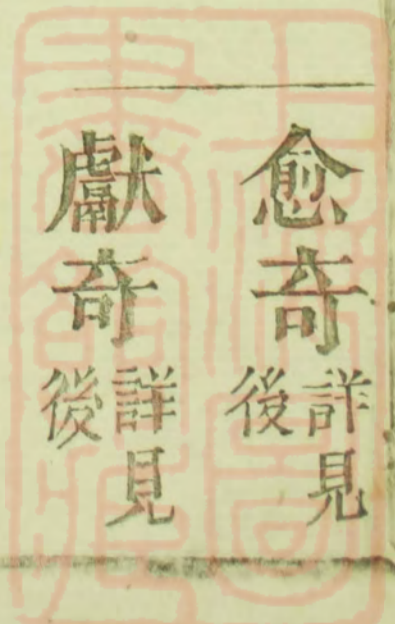 愈奇詳見後
獻奇詳見後